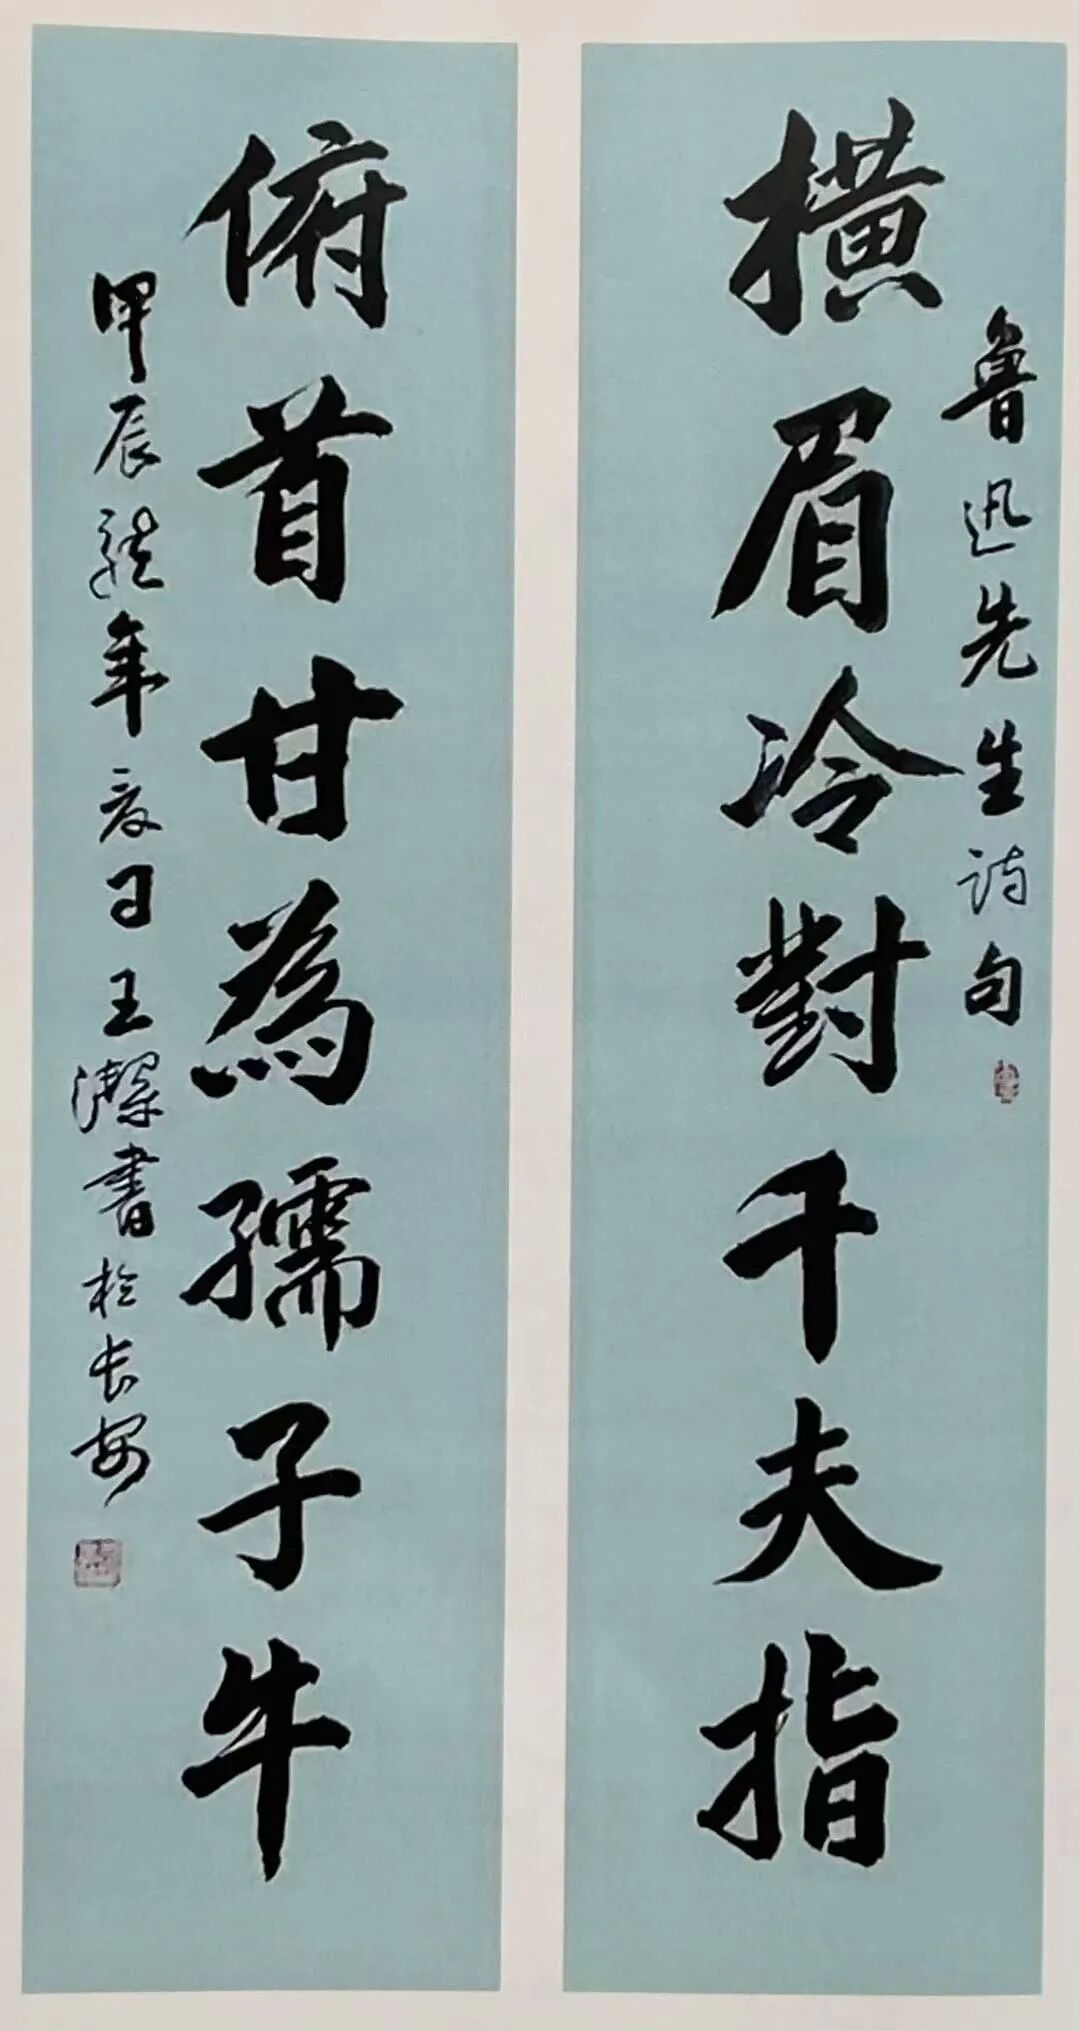 橫眉冷對千夫指
魯迅先生诗句
俯首甘為孺子牛
甲辰龍年夏日王潔書於长安